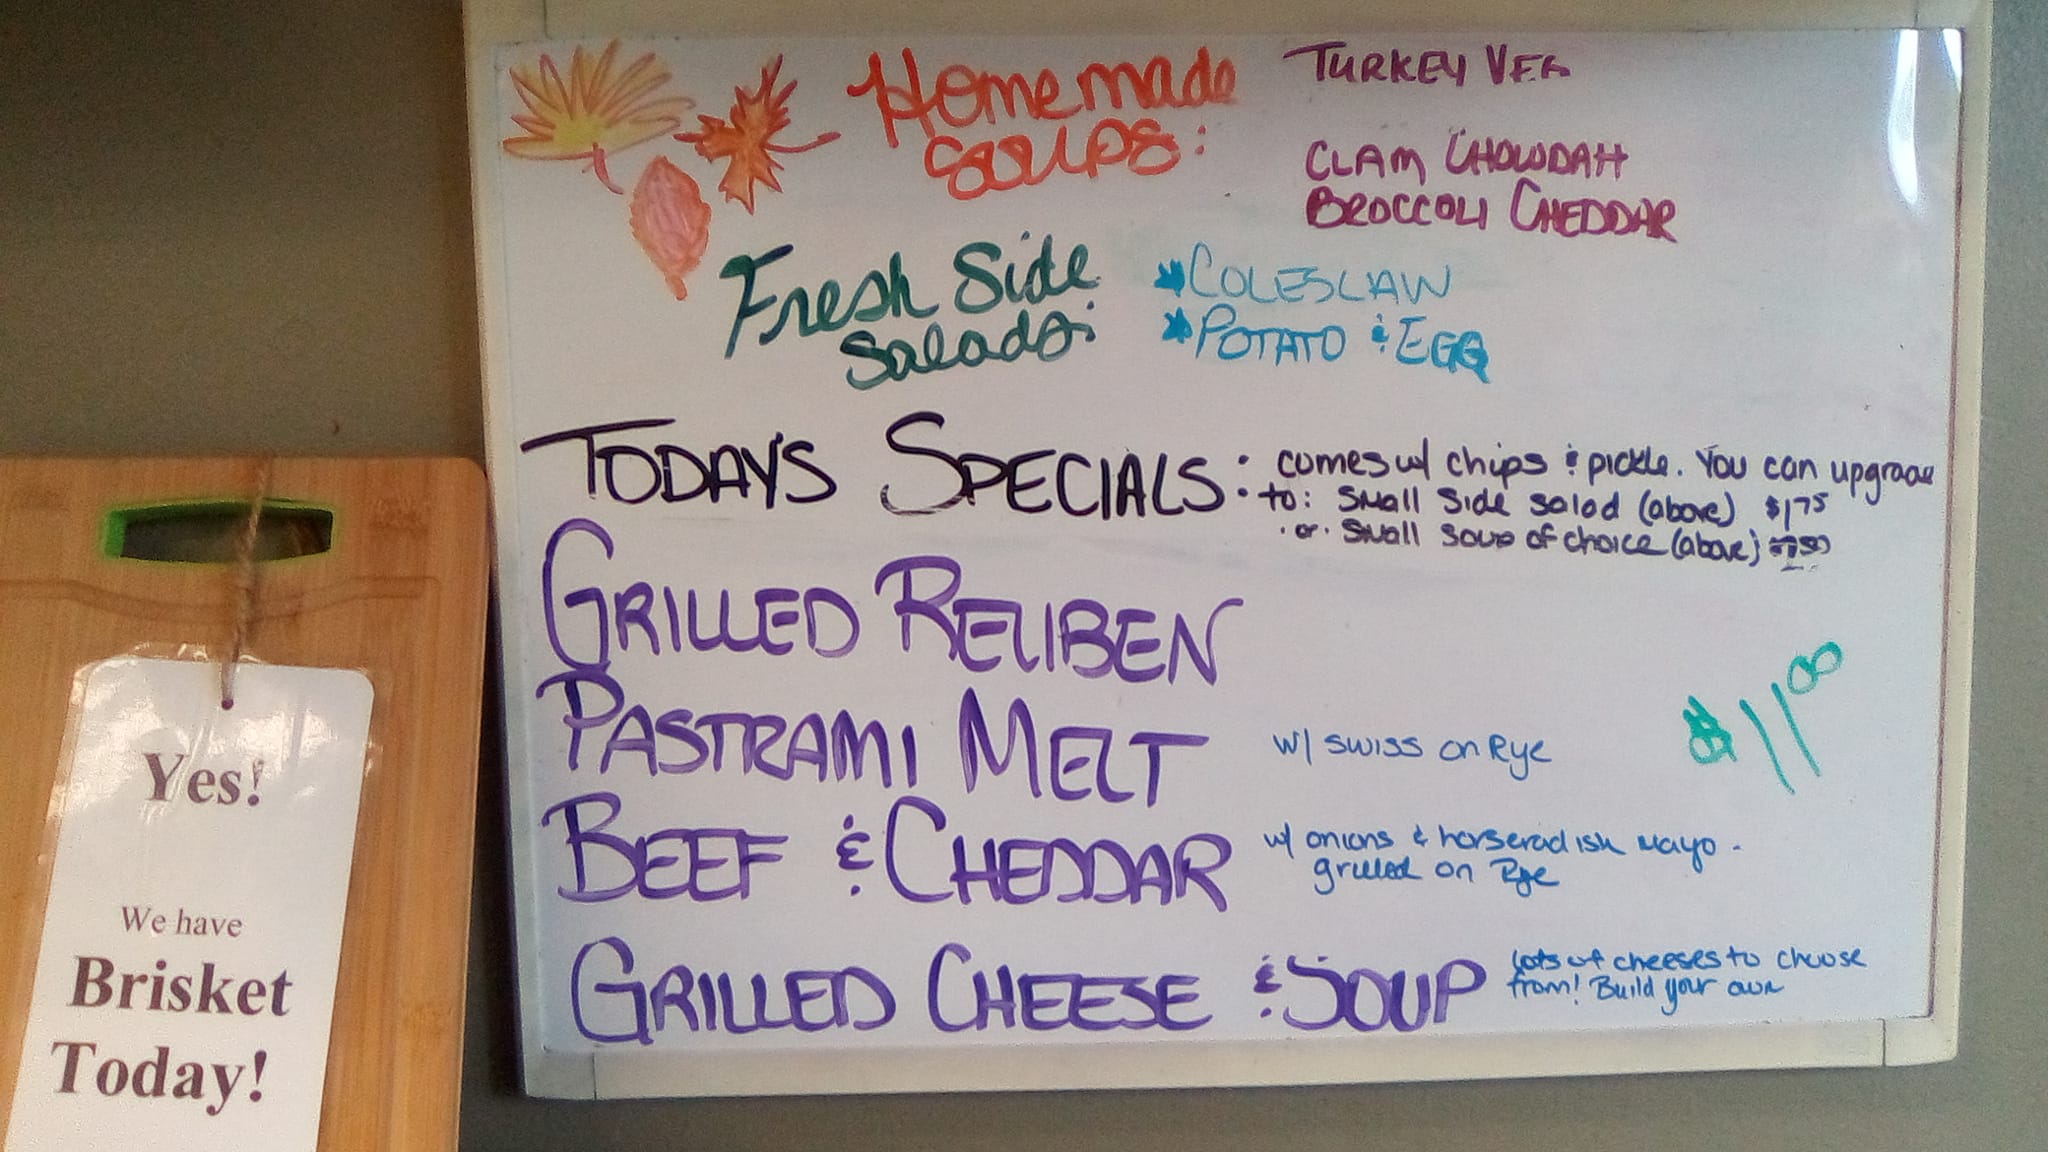 Homemade
Soups:
TURKEY VEG
CLAM CHOWDAH
BROCCOLI CHEDDAR
Fresh Side
Salads:
COLESLAW
POTATO & EGG
TODAY'S SPECIALS:
comes w/ chips & pickle. You can upgrade
to: Small Side Salad (above) $1.75
.or. Small soup of choice (above)
GRILLED REUBEN
PASTRAMI MELT
w/ swiss on Rye
$11.00
BEEF & CHEDDAR
w/ onions & horseradish mayo -
grilled on Rye
GRILLED CHEESE & SOUP
Lots of cheeses to choose
from! Build your own
Yes!
We have
Brisket
Today!